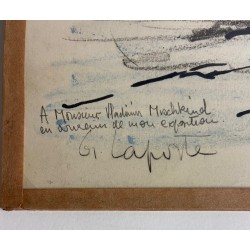 A Monsieur Vladimir Mischkind
en souvenir de mon exposition.
G. Laporte